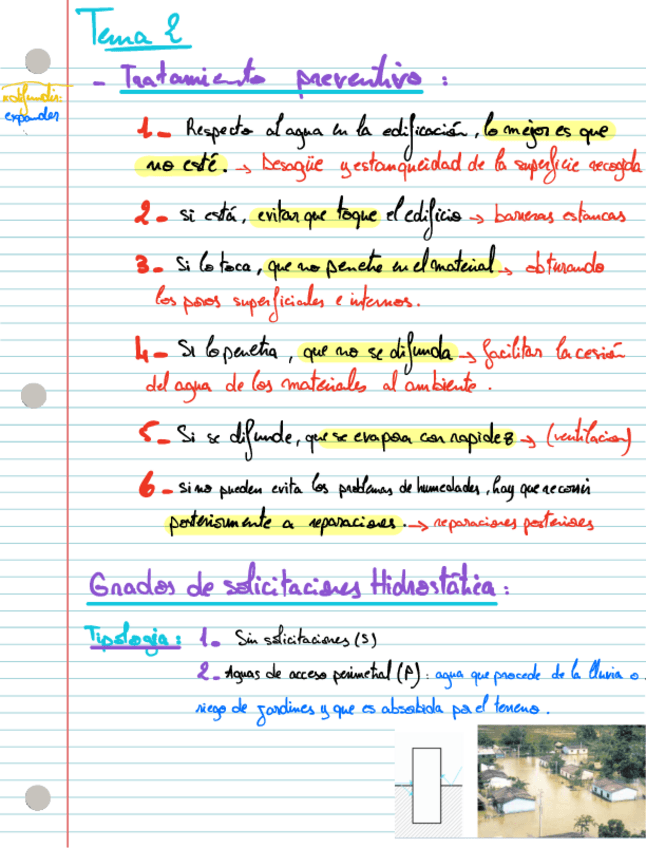 Tema 2
- Tratamiento preventivo :
*difundir:
expander
1- Respecto al agua en la edificación, lo mejor es que
no esté. → Desagüe y estanqueidad de la superficie recogida
2- si está, evitar que toque el edificio → barreras estancas
3- Si lo toca, que no penetre en el material → obturando
los poros superficiales e internos.
4- Si lo penetra, que no se difunda → facilitar la cesión
del agua de los materiales al ambiente.
5- Si se difunde, que se evapora con rapidez → (ventilacion)
6- si no pueden evita los problemas de humedades, hay que recorrir
posteriormente a reparaciones. → reparaciones posteriores
Grados de solicitaciones Hidrostática :
Tipología : 1- Sin solicitaciones (S)
2- Aguas de acceso perimetral (P) : agua que procede de la lluvia o
riego de jardines y que es absorbida por el terreno.